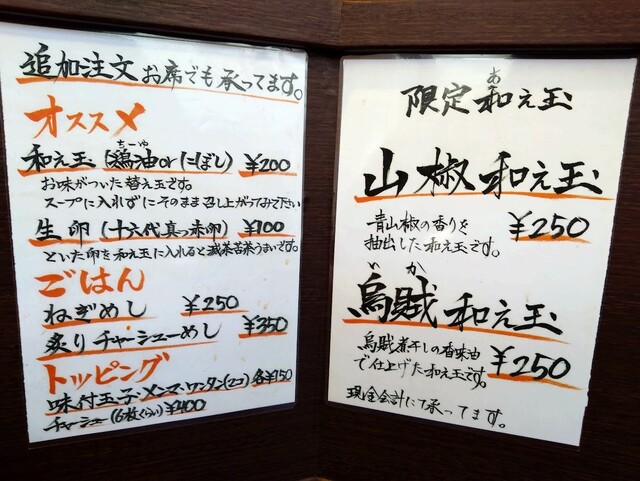 追加注文 お席でも承ってます。
オススメ
和え玉 (鶏油orにぼし) ¥200
ちーゆ
お味がついた替え玉です。
スープに入れずにそのまま召し上がってみて下さい
生卵 (十六代真っ赤卵) ¥100
といた卵を和え玉に入れると滅茶苦茶うまいです。
ごはん
ねぎめし ¥250
炙りチャーシューめし ¥350
トッピング
味付玉子・メンマ・ワンタン(2コ) 各¥150
チャーシュー(6枚くらい) ¥400
限定 和え玉
あ
山椒 和え玉
青山椒の香りを
抽出した和え玉です。 ¥250
いか
烏賊 和え玉
烏賊煮干しの香味油
で仕上げた和え玉です。 ¥250
現金会計にて承ってます。